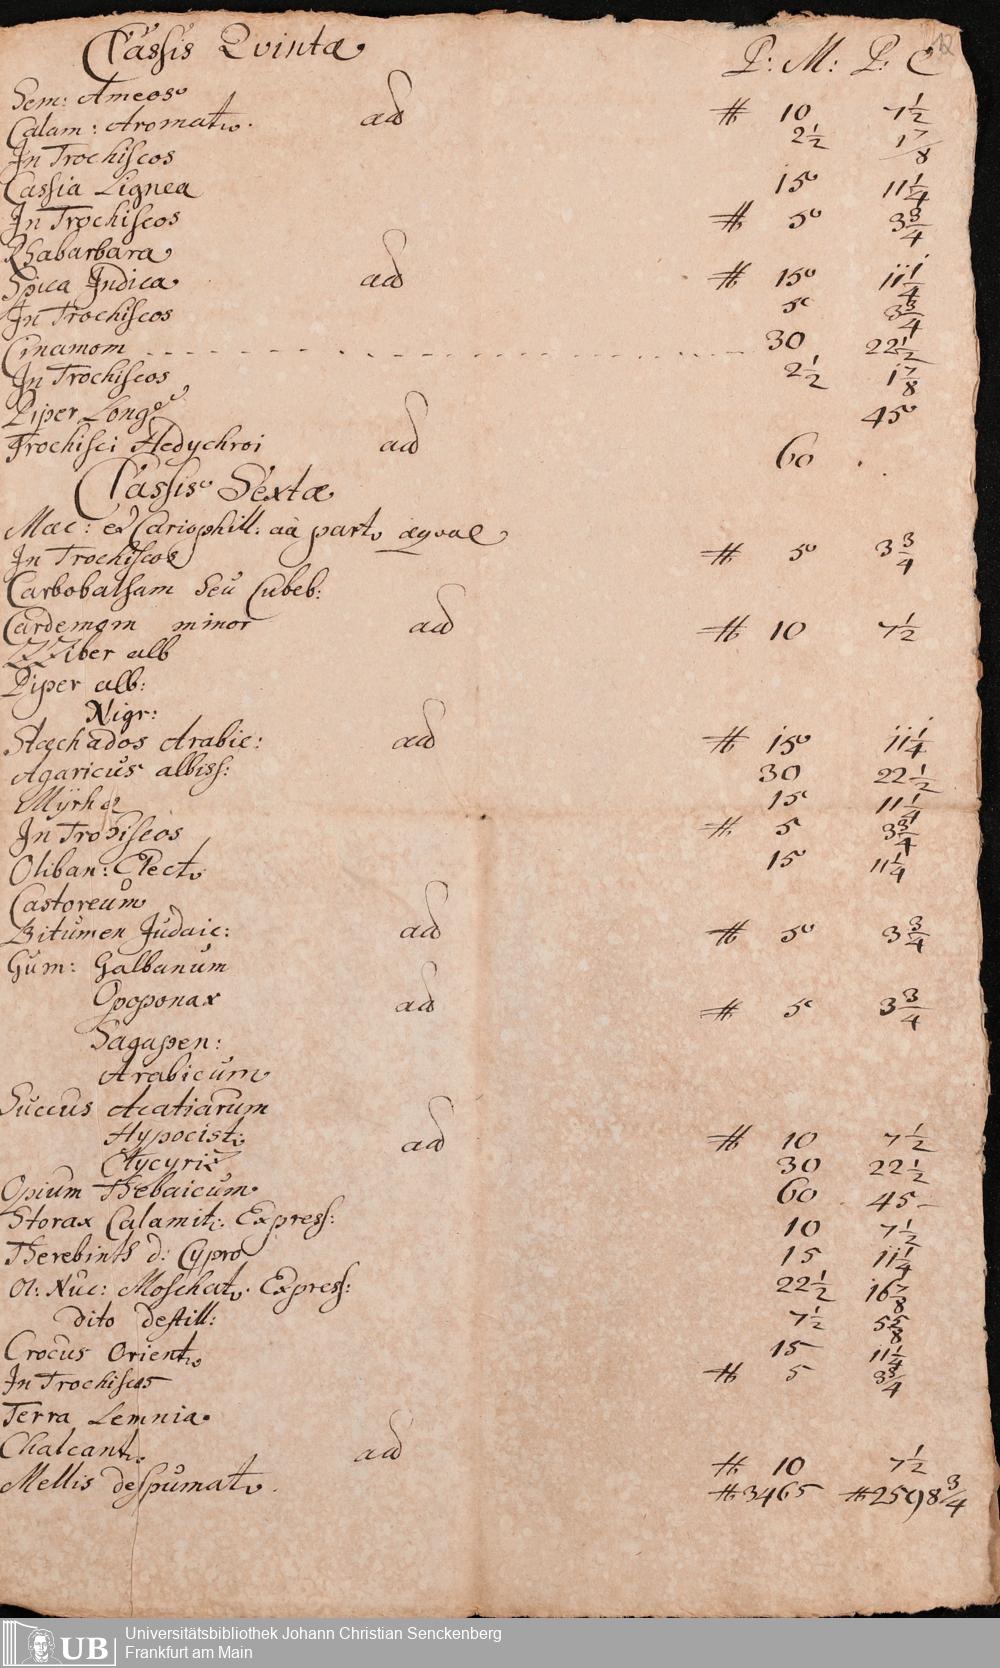 Classis Qvinta
P: M: P: C
12
Sem: Ameos
Calam: Aromat. aa # 10 7 1/2
In Trochiscos 2 1/2 1 7/8
Cassia Lignea 15 11 1/4
In Trochiscos # 5 3 3/4
Rhabarbara
Spica Indica aa # 15 11 1/4
In Trochiscos 5 3 3/4
Cinamom 30 22 1/2
In Trochiscos 2 1/2 1 7/8
Piper Long: 45
Trochisci Hedychroi aa 60
Classis Sexta
Mac: et Cariophill: aa part. æqvae
In Trochiscos # 5 3 3/4
Carbobalsam Seu Cubeb:
Cardemom minor aa # 10 7 1/2
ZZiber alb
Piper alb:
Nigr:
Stæchados Arabic: aa # 15 11 1/4
Agaricus albiss: 30 22 1/2
Myrhæ 15 11 1/4
In Trohiscos # 5 3 3/4
Oliban: Elect. 15 11 1/4
Castoreum
Bitumen Judaic: aa # 5 3 3/4
Gum: Galbanum
Opoponax aa # 5 3 3/4
Sagapen:
Arabicum
Succus Acatiarum
Hypocist: aa # 10 7 1/2
Glycyriz 30 22 1/2
Opium Thebaicum 60 45 -
Storax Calamit. Express: 10 7 1/2
Therebinth d: Cypro 15 11 1/4
Ol: Nuc: Moschat. Express: 22 1/2 16 7/8
dito destill: 7 1/2 5 5/8
Crocus Orient. 15 11 1/4
In Trochiscos # 5 3 3/4
Terra Lemnia
Chalcant. aa # 10 7 1/2
Mellis despumat. # 3465 # 2598 3/4
UB
Universitätsbibliothek Johann Christian Senckenberg
Frankfurt am Main